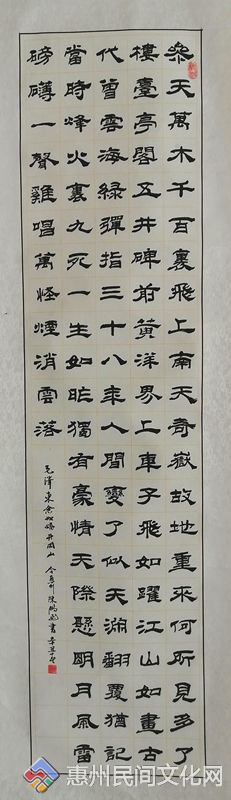 參天萬木千百裏飛上南天奇嶽故地重來何所見多了
樓臺亭閣五井碑前黃洋界上車子飛如躍江山如畫古
代曾雲海綠彈指三十八年人間變了似天淵翻覆猶記
當時烽火裏九死一生如昨獨有豪情天際懸明月風雷
磅礴一聲雞唱萬怪煙消雲落
毛澤東念奴嬌井岡山
惠州民间文化网